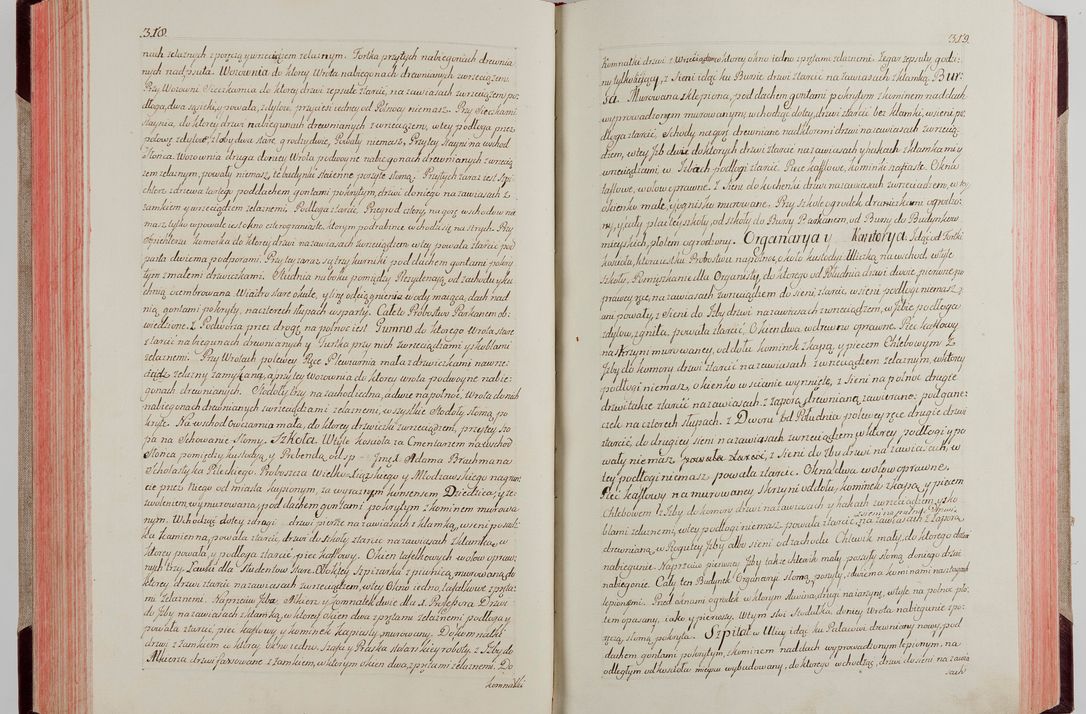 318.
nach żelaznych z poręczą y wrzeciądzem żelaznym. Fortka przytych na biegunach drewnia-
nych nadpsuta. Wozownia do ktorey Wrota na biegonach drewnianych z wrzeciądzem.
Przy Wozowni Sieczkarnia do ktorey drzwi zepsute z tarcic, na zawiasach z wrzeciądzem, po-
dłoga, dwa sąsieki, y powała, z dylow, przyciesi iedney od Pułnocy niemasz. Przy Sieczkarni
Staynia, do ktorey drzwi na biegunach drewnianych z wrzeciądzem, w tey podłoga przez
połowę z dylow, żłoby dwa stare, grodzy dwie, Powały niemasz, Przy tey Stayni na wschod
Słonca Wozownia druga, do niey Wrota podwoyne na biegonach drewnianych z wrzecią-
zem żelaznym, powały niemasz, te budynki staienne poszyte słomą. Przytych zaraz iest Szpi-
chlerz z drzewa tartego pod dachem gontami pokrytym, drzwi do niego na zawiasach z
zamkiem y wrzeciądzem żelaznemi. Podłoga z tarcic. Przegrod cztery, na gorę wschodow nie-
masz tylko wpowale iest okno czterograniaste, ktorym po drabinie wchodzą na strych. Przy
Spichlerzu komorka do ktorey drzwi na zawiasach z wrzeciądzem, w tey powała z tarcic pod-
parta dwiema podporami. Przy tey zaraz są trzy kurniki pod dachem gontami pokry-
tym z małemi drzwiczkami. Studnia na boku pomiędzy Rezydencyą od zachodu y ku-
chnią ocembrowana. Wiadro stare okute, y linę od ciągnienia wody maiąca, dach nad
nią gontami pokryty, na czterech słupach wsparty. Całe to Probostwo Parkanem ob-
wiedzione. Z Podworza przez drogę na pułnoc iest Gumno do ktorego Wrota stare
z tarcic na biegunach drewnianych y Furtka przy nich z wrzeciądzami y skoblami
żelaznemi. Przy Wrotach po lewey Ręce Plewiarnia mała z drzwiczkami na wrze-
ciądz żelazny zamykaną, a przy tey Wozownia do ktorey wrota podwoyne na bie-
gonach drewnianych. Stodoły trzy na zachod iedna, a dwie na pułnoc. Wrota do nich
na biegonach drewnianych z wrzeciądzami żelaznemi, wszystkie Stodoły słomą po-
kryte. Na wschod Owczarnia mała, do ktorey drzwiczki z wrzeciądzem, przy tey Szo-
pa na Schowanie Słomy. Szkoła. W tyle kościoła za Cmentarzem na wschod
Słonca pomiędzy kustodyą y Prebendą od s.p. Jmci X. Adama Brachmana
Scholastyka Pileckiego Proboszcza Wielko-Xiążskiego y Modrzewskiego na grun-
cie przez Niego od miasta kupionym, za wyraznym konsensem Dziedzica, y ze-
zwoleniem, wymurowana, pod dachem gontami pokrytym z kominem murowa-
nym. Wchodząc do tey z drogi drzwi piersze na zawiasach z klamką, w sieni posadz-
ka kamienna, powała z tarcic, drzwi do szkoły z tarcic na zawiasach z klamką, w
ktorey powała y podłoga z tarcic piec kaflowy. Okien tafelkowych w ołow opraw-
nych trzy. Ławki dla Studentow stare. Obok tey Szpizarka z piwnicą murowaną do
ktorey drzwi z tarcic na zawiasach z wrzeciądzem, w tey Okno iedno, tafelkowe z pręta-
mi żelaznemi. Naprzeciw Izba, Alkierz y komnatek dwie dla J. Professora. Drzwi
do Izby na zawiasach z klamką, w ktorey Okien dwa z prętami żelaznemi podłoga y
powała z tarcic, piec kaflowy y kominek kapiasty murowany. Do komnatki
drzwi z zamkiem w ktorey Okno iedno. Szafa y Praska stolarskiey roboty. z Izby do
Alkierza drzwi fasowane z zamkiem, w ktorym okien dwa z prętami żelaznemi. Do
komnatki
319.
komnatki drzwi z Wrzeciądzem w ktorey okno iedno z prętami żelaznemi. Zegar zepsuty godzi-
ny tylko bijący, z Sieni idąc ku Bursie drzwi z tarcic na zawiasach z klamką. Bur-
sa. Murowana sklepiona, pod dachem gontami pokrytym, z kominem nad dach
wyprowadzonym murowanym, wchodząc do tey, drzwi z tarcic bez klamki, w sieni po-
dłoga z tarcic. Schody na gorę drewniane nad ktoremi drzwi na zawiasach z wrzecią-
dzem, w tey Izb dwie do ktorych drzwi z tarcic na zawiasach y hakach z klamkami y
wrzeciądzami, w Izbach podłogi z tarcic. Piece kaflowe, kominki kapiaste. Okna
taflowe, w ołow oprawne. Z Sieni do kuchenki drzwi na zawiasach z wrzeciądzem, w tey
okienko małe, y ognisko murowane. Przy Szkole ogrodek dranicszkami ogrodzo-
ny, y cały plac tey szkoły, od szkoły do Bursy Parkanem, od Bursy do Budynkow
mieyskich, płotem ogrodzony. Organarya y Kantorya. Idąc od Fortki
kościoła, ktora iest ku Probostwu na pułnoc, około kustody, Uliczką na wschod, w tyle
Szkoły, Pomieszkanie dla Organisty, do ktorego od Południa drzwi dwoie, pierwsze po
prawey ręce, na zawiasach z wrzeciądzem do sieni, z tarcic, w sieni podłogi niemasz
ani powały, z Sieni do Izby drzwi na zawiasach z wrzeciądzem, w Izbie podłoga
z dylow, zgniła, powała z tarcic, Okien dwa, w drzewo oprawne. Piec kaflowy
na skrzyni murowaney, od dołu kominek z kapą, y piecem Chlebowym z
Izby do komory drzwi z tarcic na zawiasach z wrzeciądzem żelaznym, w ktorey
podłogi niemasz, okienko w ścianie wyrznięte, z Sieni na pułnoc drugie
drzwi także z tarcic na zawiasach z zaporą drewnianą zawierane, pod gan-
czek na czterech słupach. z Dworu od Południa po lewey ręce drugie drzwi
z tarcic, do drugiey sieni na zawiasach z wrzeciądzem, w ktorey podłogi y po-
wały niemasz powała z tarcic, z Sieni do Izby drzwi na zawiasach, w
tey podłogi niemasz powała z tarcic. Okna dwa w ołow oprawne.
Piec kaflowy na murowaney skrzyni od dołu, kominek z kapą, y piecem
Chlebowem z Izby do komory drzwi na zawiasach y hakach z wrzeciądzem y sko-
blami żelaznemi, w tey podłogi niemasz, powała z tarcic, z sieni na pułnoc drzwi na zawiasach z zaporą
drewnianą, w Rogu tey Izby albo sieni od zachodu Chlewik mały, do ktorego drzwi
na biegunie. Naprzeciw pierwszey Izby także chlewik mały poszyty słomą do niego drzwi
na biegonie. Cały ten Budynek Organaryi słomą poszyty, z dwiema kominami na strzych
lepionymi. Przed oknami ogrodek w ktorym śliwina, drugi na iarzyny, w tyle na pułnoc pło-
tem opasany, iako y pierwszy. W tym stoi Stodułka, do niey Wrota na biegunie z po-
ręczą, słomą pokryta. Szpital w Ulicy idąc ku Pałacowi drewniany nowy, pod
dachem gontami pokrytym, z kominem nad dach wyprowadzonym lepionym, na
odległym od kościoła mieyscu wybudowany, do ktorego wchodząc, drzwi do sieni na zawia-
sach